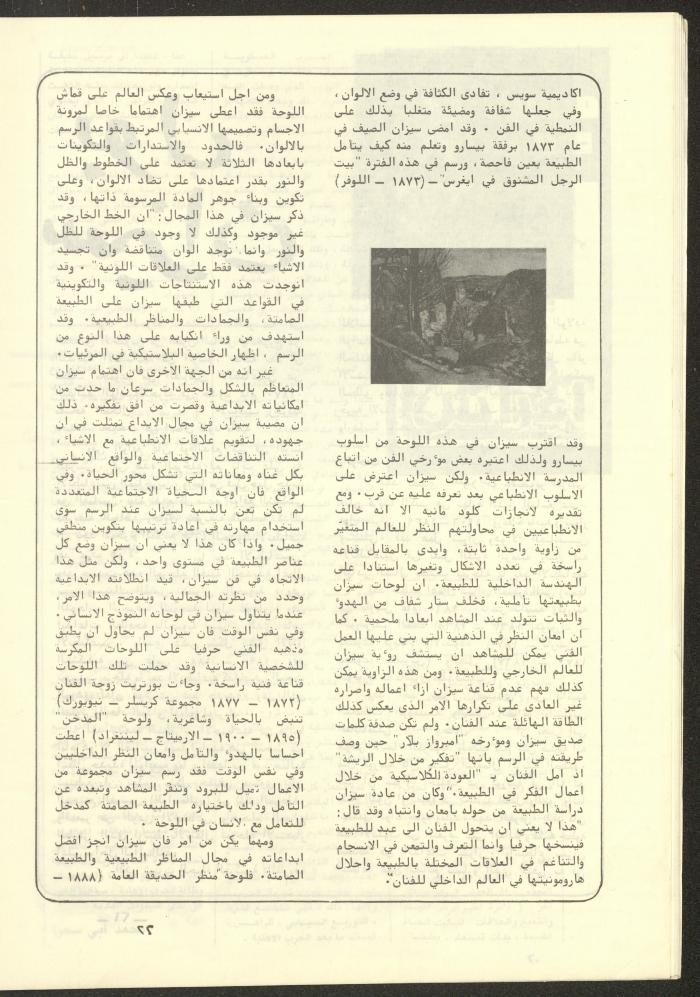 اكاديمية سويس ، تفادى الكثافة في وضع الالوان ،
وفي جعلها شفافة ومضيئة متغلبا بذلك على
النمطية في الفن ٠ وقد امضى سيزان الصيف في
عام ١٨٧٣ برفقة بيسارو وتعلم منه كيف يتأمل
الطبيعة بعين فاحصة ، ورسم في هذه الفترة "بيت
الرجل المشنوق في ايفرس" ــ (١٨٧٣ ــ اللوفر)
وقد اقترب سيزان في هذه اللوحة من اسلوب
بيسارو ولذلك اعتبره بعض مؤرخي الفن من اتباع
المدرسة الانطباعية٠ ولكن سيزان اعترض على
الاسلوب الانطباعي بعد تعرفه عليه عن قرب٠ ومع
تقديره لانجازات كلود مانيه الا انه خالف
الانطباعيين في محاولتهم النظر للعالم المتغيّر
من زاوية واحدة ثابتة، وابدى بالمقابل قناعه
راسخة في تعدد الاشكال وتغيرها استنادا على
الهندسة الداخلية للطبيعة٠ ان لوحات سيزان
بطبيعتها تأملية، فخلف ستار شفاف من الهدوء
والثبات تتولد عند المشاهد ابعادا ملحمية ٠ كما
ان امعان النظر في الذهنية التي بني عليها العمل
الفني يمكن للمشاهد ان يستشف رؤية سيزان
للعالم الخارجي وللطبيعة٠ ومن هذه الزاوية يمكن
كذلك فهم عدم قناعة سيزان ازاء اعماله واصراره
غير العادى على تكرارها الامر الذى يعكس كذلك
الطاقة الهائلة عند الفنان٠ ولم تكن صدفة كلمات
صديق سيزان ومؤرخه "امبرواز بلآر" حين وصف
طريقته في الرسم بانها "تفكير من خلال الريشة"
اذ امل الفنان بـ "العودة الكلاسيكية من خلال
اعمال الفكر في الطبيعة"٠ وكان من عادة سيزان
دراسة الطبيعة من حوله بامعان وانتباه وقد قال:
"هذا لا يعني ان يتحول الفنان الى عبد للطبيعة
فينسخها حرفيا وانما التعرف والتمعن في الانسجام
والتناغم في العلاقات المختلة بالطبيعة واحلال
هارمونيتها في العالم الداخلي للفنان"٠
ومن اجل استيعاب وعكس العالم على قماش
اللوحة فقد اعطى سيزان اهتماما خاصا لمرونة
الاجسام وتصميمها الانسيابي المرتبط بقواعد الرسم
بالالوان٠ فالحدود والاستدارات والتكوينات
بابعادها الثلاثة لا تعتمد على الخطوط والظل
والنور بقدر اعتمادها على تضاد الالوان، وعلى
تكوين وبناء جوهر المادة المرسومة ذاتها، وقد
ذكر سيزان في هذا المجال: "ان الخط الخارجي
غير موجود وكذلك لا وجود في اللوحة للظل
والنور وانما توجد الوان متناقضة وان تجسيد
الاشياء يعتمد فقط على العلاقات اللونية" ٠ وقد
انوجدت هذه الاستنتاجات اللونية والتكوينية
في القواعد التي طبقها سيزان على الطبيعة
الصامتة، والجمادات والمناظر الطبيعية٠ وقد
استهدف من وراء انكبابه على هذا النوع من
الرسم ، اظهار الخاصية البلاستيكية في المرئيات٠
غير انه من الجهة الاخرى فان اهتمام سيزان
المتعاظم بالشكل والجمادات سرعان ما حدت من
امكانياته الابداعية وقصرت من افق تفكيره٠ ذلك
ان مصيبة سيزان في مجال الابداع تمثلت في ان
جهوده، لتقويم علاقات الانطباعية مع الاشياء ،
انسته التناقضات الاجتماعية والواقع الانساني
بكل غناه ومعاناته التي تشكل محور الحياة٠ وفي
الواقع فان اوجه الحياة الاجتماعية المتعددة
لم تكن تعن بالنسبة لسيزان عند الرسم سوى
استخدام مهارته في اعادة ترتيبها بتكوين منطقي
جميل٠ واذا كان هذا لا يعني ان سيزان وضع كل
عناصر الطبيعة في مستوى واحد، ولكن مثل هذا
الاتجاه في فن سيزان، قيد انطلاقته الابداعية
وحدد من نظرته الجمالية، ويتوضح هذا الامر،
عندما يتناول سيزان في لوحاته النموذج الانساني٠
وفي نفس الوقت فان سيزان لم يحاول ان يطبق
مذهبه الفني حرفيا على اللوحات المكرسة
للشخصية الانسانية وقد حملت تلك اللوحات
قناعة فنية راسخة٠ وجاءت بورتريت زوجة الفنان
(١٨٧٢ ــ ١٨٧٧ مجموعة كريسلر ــ نيويورك)
تنبض بالحياة وشاعرية، ولوحة "المدخن"
(١٨٩٥ ــ ١٩٠٠ ــ الارميتاج ــ لينينغراد) اعطت
احساسا بالهدوء والتأمل وامعان النظر الداخليين
وفي نفس الوقت فقد رسم سيزان مجموعة من
الاعمال تميل للبرود وتنفّر المشاهد وتبعده عن
التأمل وذلك باختياره الطبيعة الصامتة كمدخل
للتعامل مع الانسان في اللوحة ٠
ومهما يكن من امر فان سيزان انجز افضل
ابداعاته في مجال المناظر الطبيعية والطبيعة
الصامتة٠ فلوحة "منظر الحديقة العامة (١٨٨٨ ــ
٢٢